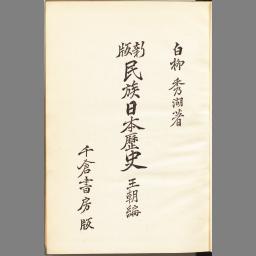 白柳秀湖著
新版 民族日本歴史 王朝編
千倉書房版